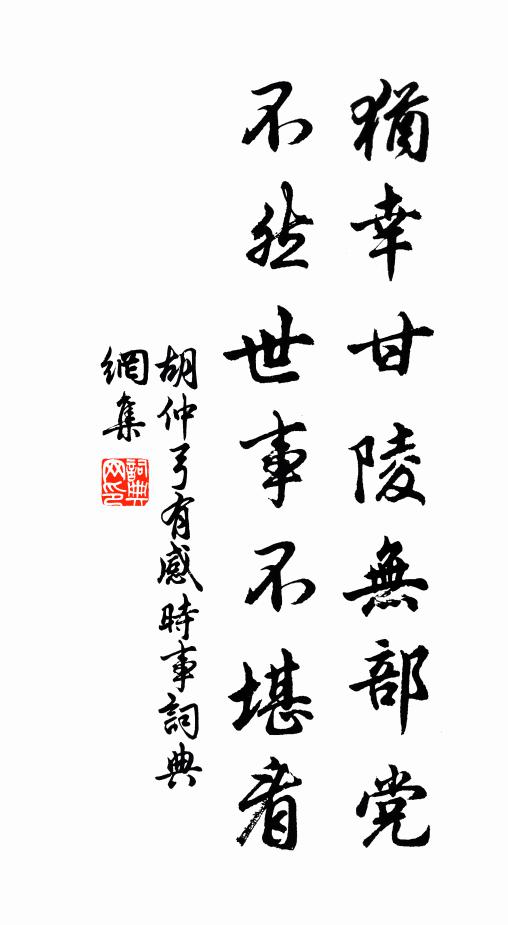 猶幸甘陵無部党
不然世事不堪看
胡仲弓有感時事詞典
網集
詞典
网印